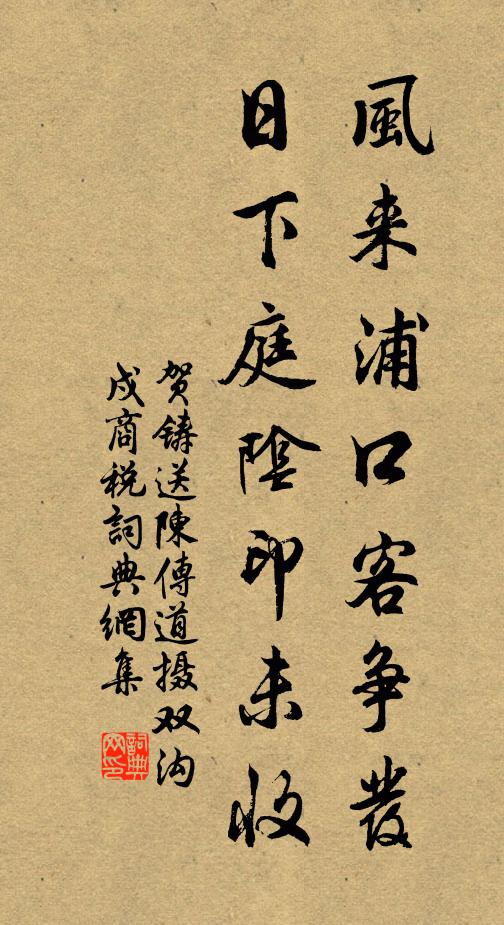 風来浦口客争發
日下庭陰印未收
贺鑄送陳傳道摄双沟
戍商税詞典網集
詞典网印